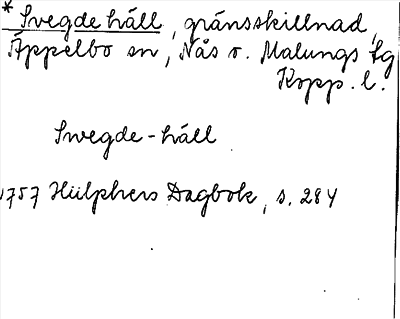 * Svegde häll, gränsskillnad,
Äppelbo sn, Nås o. Malungs tg
Kopp. l.
Swegde-häll
1757 Hülphers Dagbok, s. 284